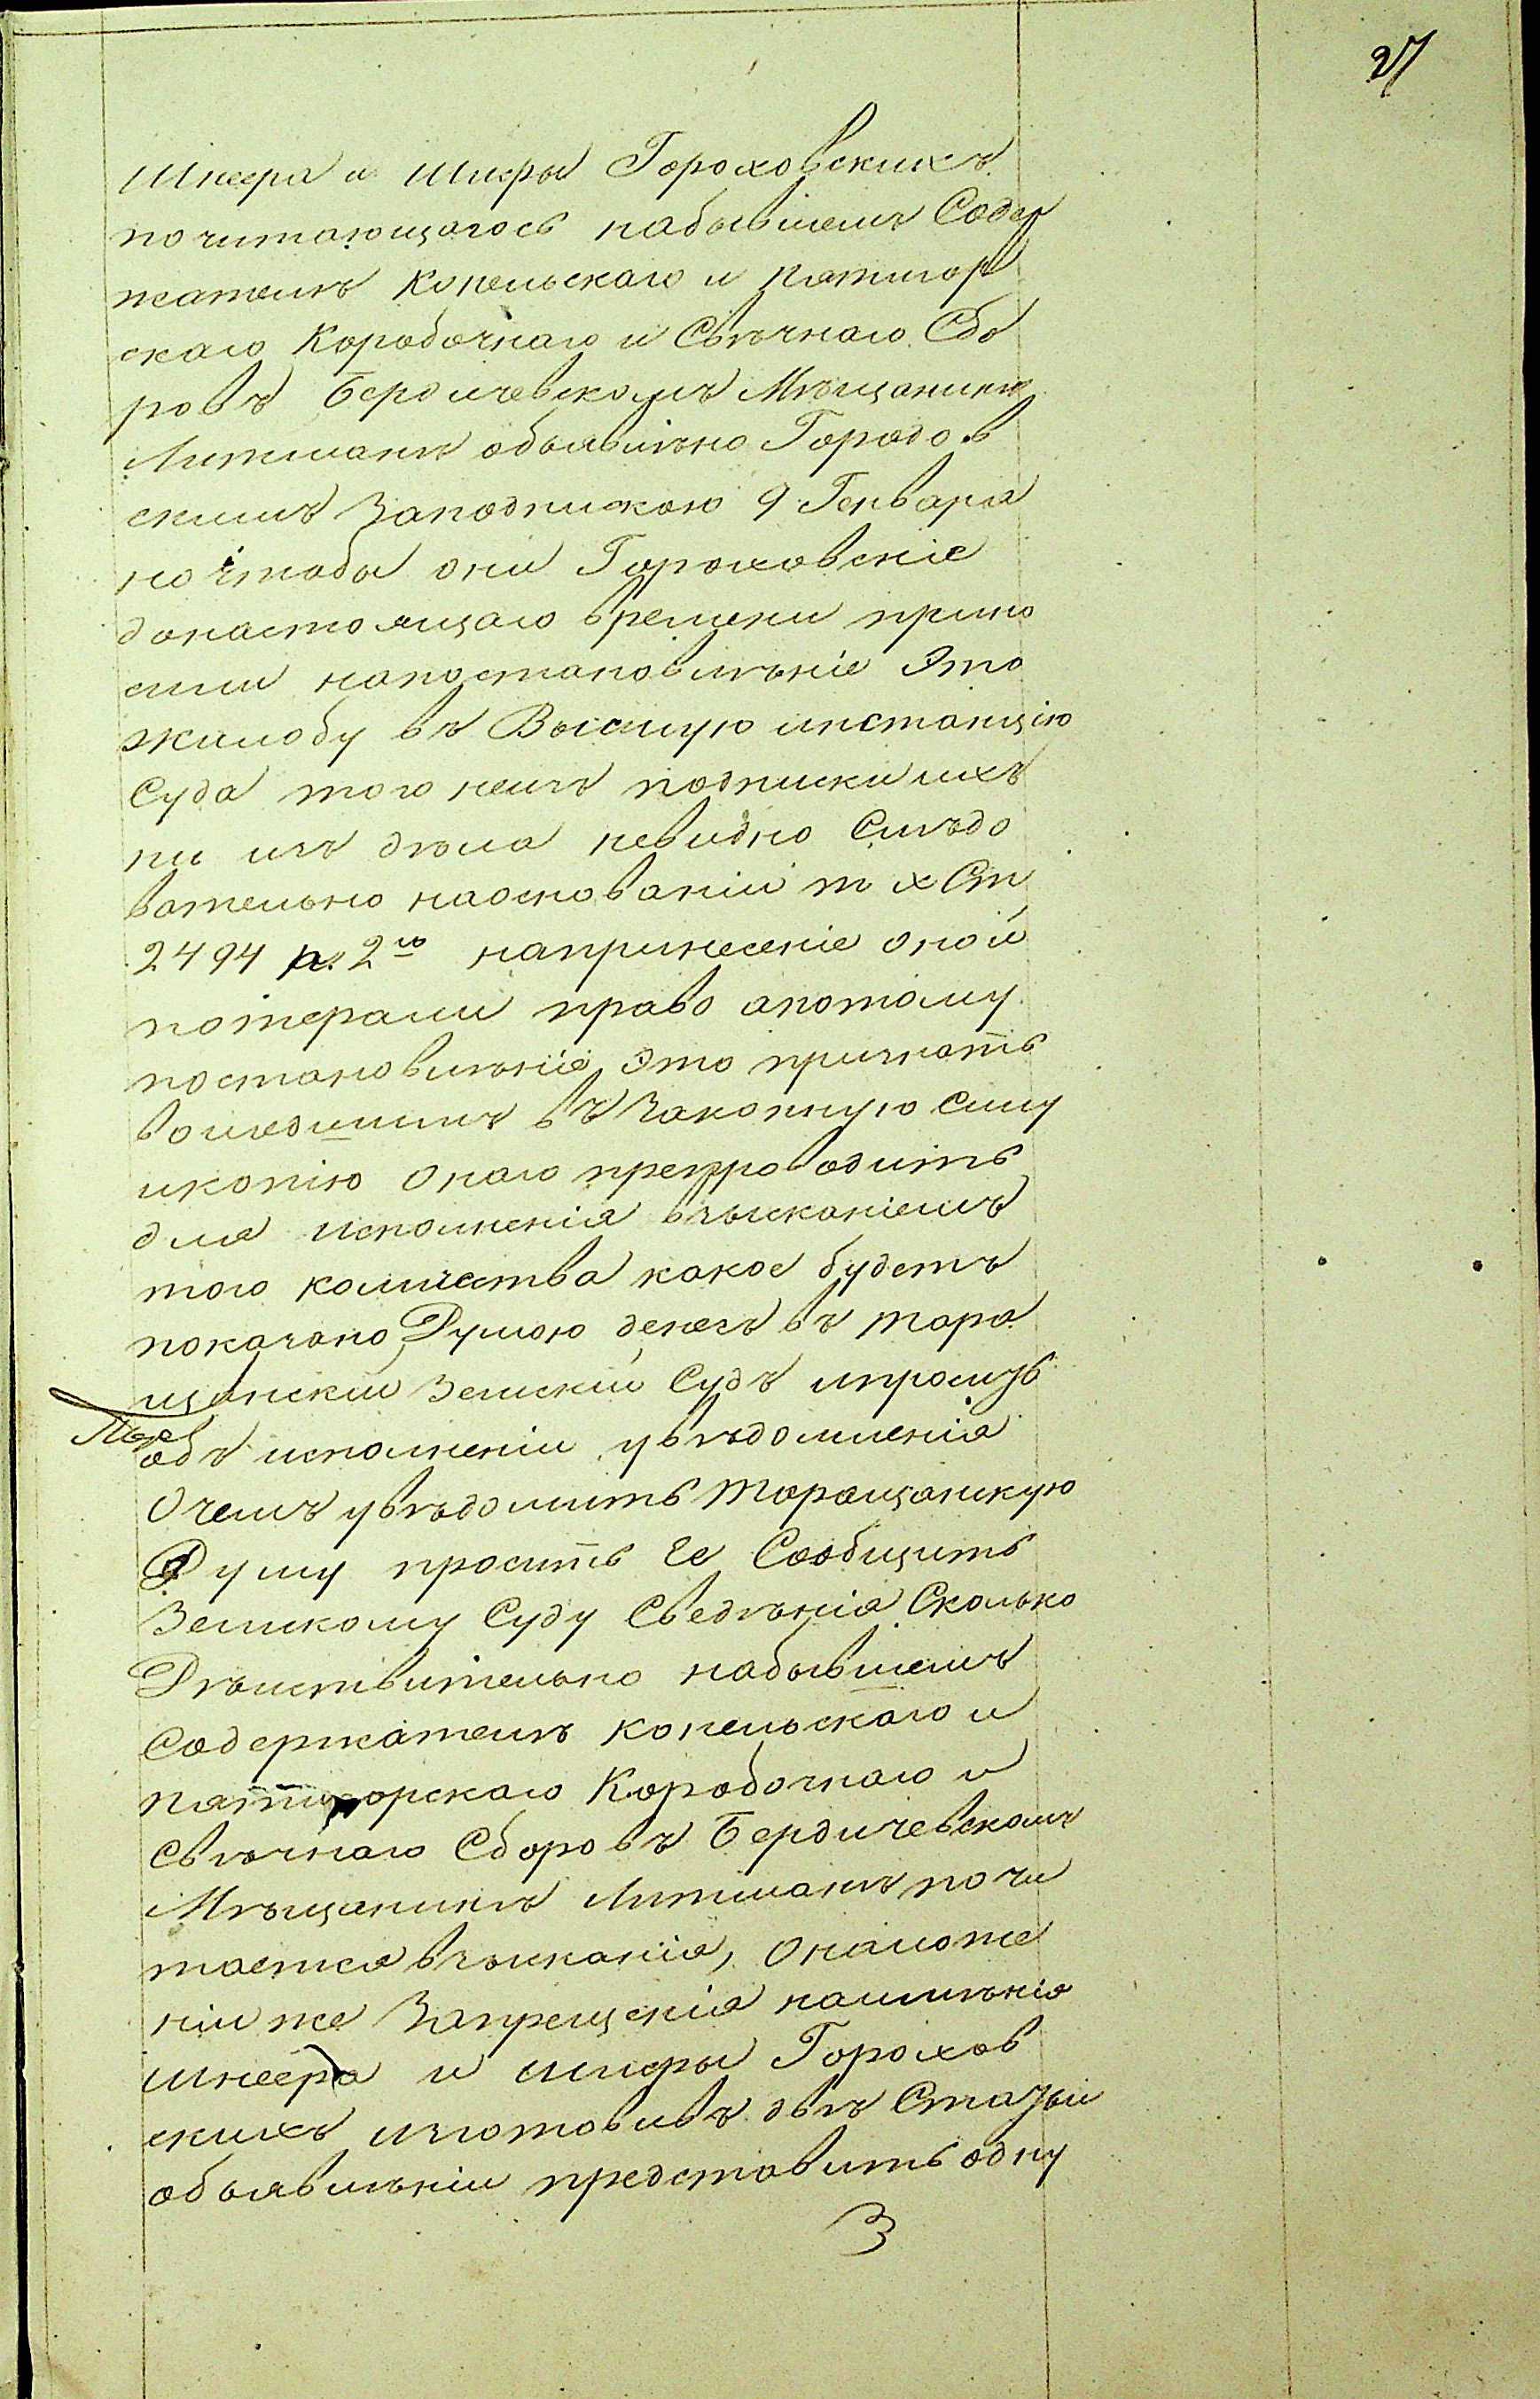 27
Шнеера и Шифры Гороховскихъ
почитающагось набывшемъ Содер
жателѣ Конельскаго и пятигор
скаго Коробочнаго и Свѣчнаго Сбо
ровъ Бердичевскомъ Мѣщанинѣ
Литманѣ объявлѣно Городов
скимъ Заподпискою 9 Генваря
но чтобы они Гороховскіе
донастоящаго времени прино
сили напостановлѣніе Это
жалобу въ Высшую инстанцію
Суда того нечъ подписки ихъ
ни изъ дѣла невидно Слѣдо
вательно наоснованіи т х Ст
2494 п. 2го напринесеніе оной
потеряли право апотому
постановлѣніе Это признать
вошедшимъ въ Законную Силу
икопію онаго препроводить
для исполненія взысканіемъ
того количества какое будетъ
показано Думою денегъ въ тара
щанскій Земскій Судъ ипросить
объ исполненіи увѣдомленія
Очемъ увѣдомить Таращанскую
Думу просить Ее Сообщить
Земскому Суду Сведѣнія Сколько
Дѣйствительно набывшемъ
Содержателѣ Конельскаго и
пятигорскаго Коробочнаго и
Свѣчнаго Сборовъ Бердичевскомъ
Мѣщанинѣ Литманѣ почи
таетса взысканія, Оналоже
ніи же Запрещенія наимѣніе
Шнеера и Шифры Горохов
скихъ изготовивъ двѣ Статьи
объявлѣніи представить одну